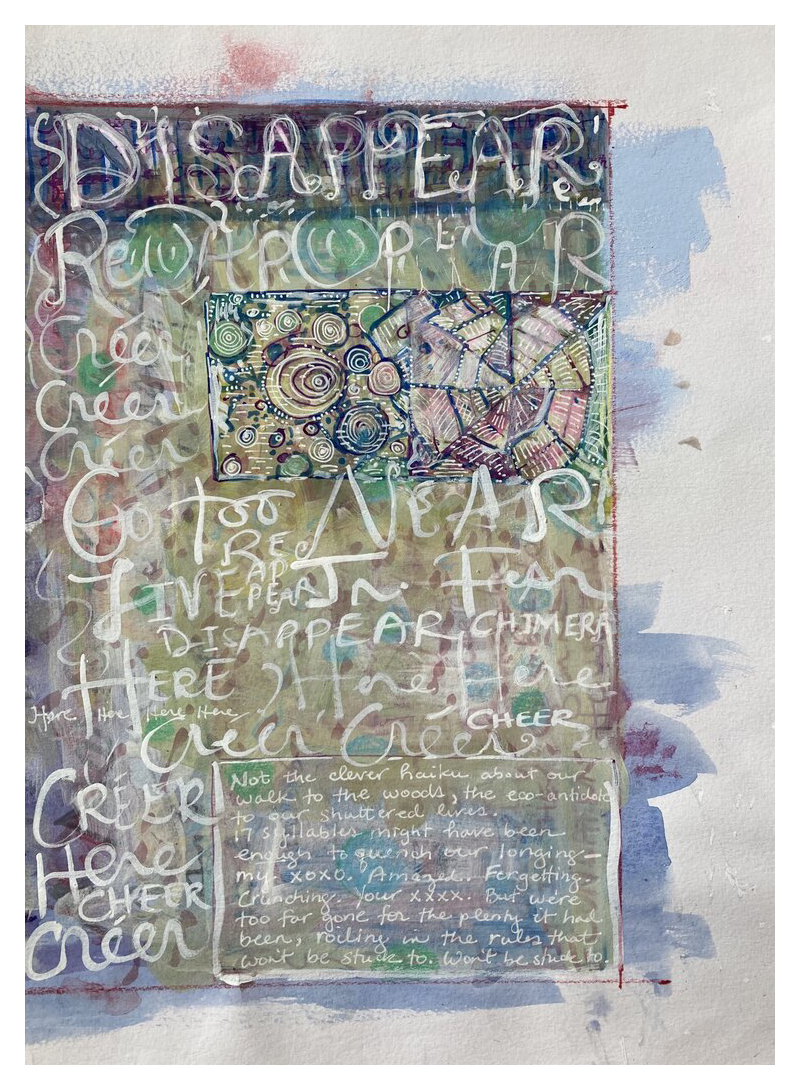 DISAPPEAR
REAPPEAR
Créer
Créer
Créer
Go too NEAR
REAPPEAR
LIVE In Fear
DISAPPEAR CHIMERA
HERE Here Here
Here Here Here Here
CHEER
Créer Créer
CRÉER
Here
CHEER
Créer
Not the clever haiku about our
walk to the woods, the eco-antidote
to our shuttered lives.
17 syllables might have been
enough to quench our longing—
my xoxo. Amazed. Forgetting.
Crunching. Your xxxx. But were
too far gone for the plenty it had
been, roiling in the rules that
won't be stuck to. Won't be stuck to.